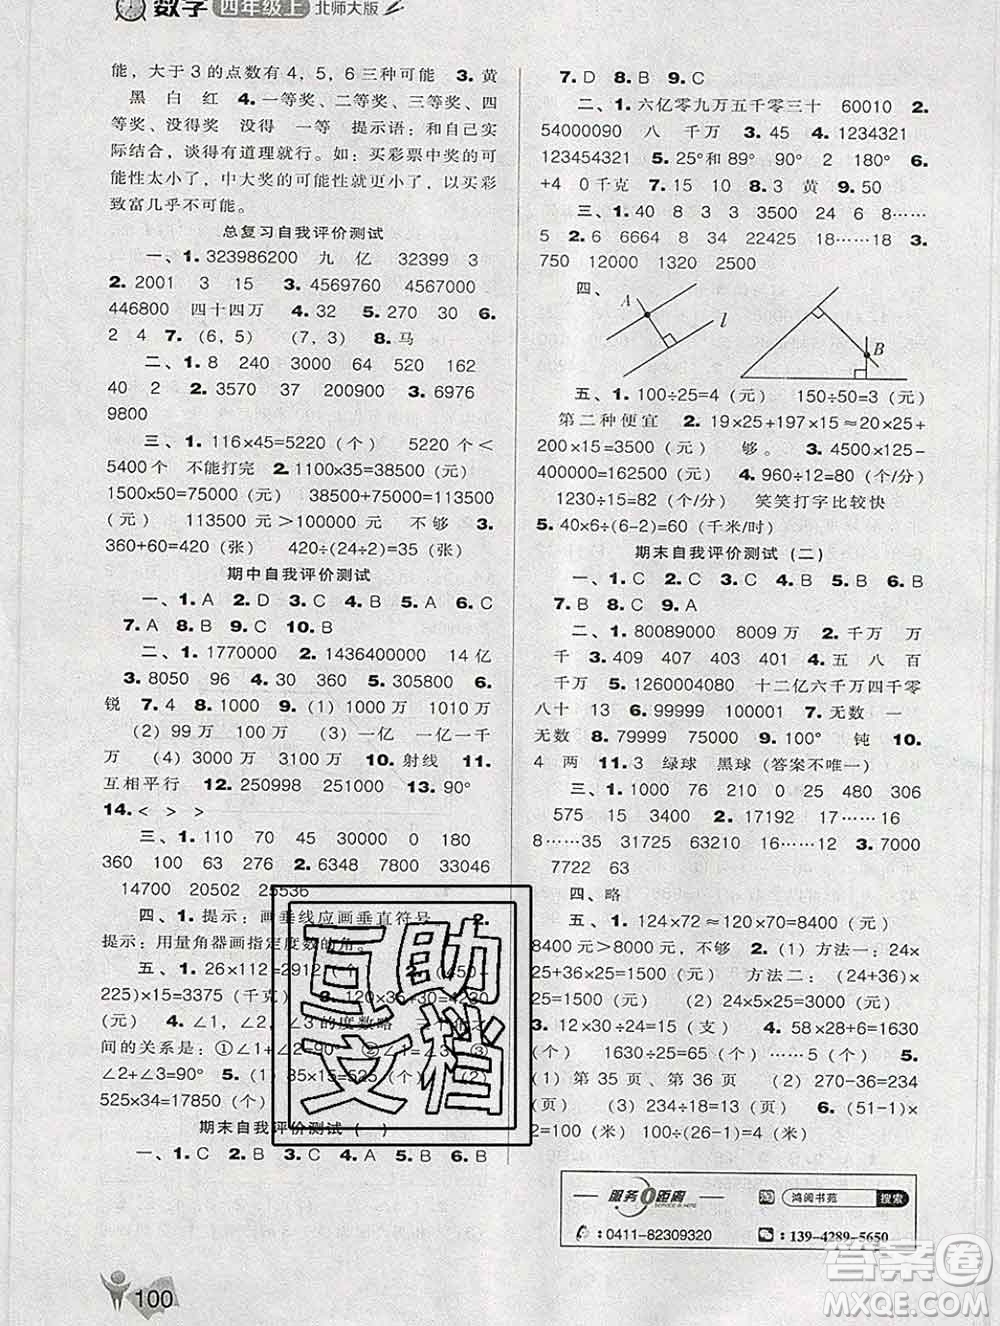 数学 四年级上 北师大版
能，大于 3 的点数有 4，5，6 三种可能 3. 黄
黑 白 红 4. 一等奖、二等奖、三等奖、四
等奖、没得奖 没得 一等 提示语：和自己实
际结合，谈得有道理就行。如：买彩票中奖的可
能性太小了，中大奖的可能性就更小了，以买彩
致富几乎不可能。
总复习自我评价测试
一、1. 323986200 九 亿 32399 3
2. 2001 3 15 3. 4569760 4567000
446800 四十四万 4. 32 5. 270 30 6.
2 4 7.（6，5）（7，3） 8. 马
二、1. 8 240 3000 64 520 162
40 2 2. 3570 37 200800 3. 6976
9800
三、1. 116×45=5220（个） 5220 个＜
5400 个 不能打完 2. 1100×35=38500（元）
1500×50=75000（元） 38500+75000=113500
（元） 113500 元＞100000 元 不够 3.
360+60=420（张） 420÷(24÷2)=35（张）
期中自我评价测试
一、1. A 2. D 3. C 4. A 5. A 6. C
7. A 8. B 9. C 10. B
二、1. 1770000 2. 1436400000 14 亿
3. 8050 96 4. 30 130 5. 10000 6.
锐 7. 4 8. 1000 9.（1）1000 万 1010 万
（2）99 万 100 万 （3）一亿 一亿一千
万 （4）3000 万 3100 万 10. 射线 11.
互相平行 12. 250998 250001 13. 90°
14. ＜ ＞ ＞
三、1. 110 70 45 30000 0 180
360 100 63 276 2. 6348 7800 33046
14700 20502 25536
四、1. 提示：画垂线应画垂直符号 2.
提示：用量角器画指定度数的角。
五、1. 26×112=2912（个） 2.（450-
225）×15=3375（千克） 3. 120×35+30=4230
（元） 4. ∠1，∠2，∠3 的度数略 三个角之
间的关系是：①∠1+∠2=90° ②∠1=∠3 ③
∠2+∠3=90° 5.（1）35×15=525（个）（2）
525×34=17850（个）
期末自我评价测试（一）
一、1. C 2. B 3. C 4. A 5. B 6. B
7. D 8. B 9. C
二、1. 六亿零九万五千零三十 60010 2.
54000090 八 千万 3. 45 4. 1234321
123454321 5. 25°和 89° 90° 2 180° 6.
+4 0 千克 7. 15 10 8. 3 黄 9. 50
三、1. 40 8 3 3 3500 24 6 8……
5 2. 6 6664 8 34 22024 18……18 3.
750 12000 1320 2500
四、
A
l
B
五、1. 100÷25=4（元） 150÷50=3（元）
第二种便宜 2. 19×25+197×15≈20×25+
200×15=3500（元） 够。 3. 4500×125-
400000=162500（元） 4. 960÷12=80（个/分）
1230÷15=82（个/分） 笑笑打字比较快
5. 40×6÷(6-2)=60（千米/时）
期末自我评价测试（二）
一、1. C 2. C 3. C 4. A 5. B 6. B
7. B 8. C 9. A
二、1. 80089000 8009 万 2. 千万 万
千 3. 409 407 403 401 4. 五 八 百
千万 5. 1260004080 十二亿六千万四千零
八十 13 6. 99999 100001 7. 无数 一
无数 8. 79999 75000 9. 100° 钝 10.
4 两 11. 3 绿球 黑球（答案不唯一）
三、1. 1000 76 210 0 25 480 306
575 1815 42 4 2. 17192 17……16
8……35 31725 63210 16……12 3. 7000
7722 63
四、略
五、1. 124×72≈120×70=8400（元）
8400 元＞8000 元，不够 2.（1）方法一：24×
25+36×25=1500（元） 方法二：(24+36)×
25=1500（元） （2）25×24-500=100（元）
3. 12×30-24=15（支） 4. 58×28+6=1630
（个） 1630÷25=65（个）……5（个） 5.
（1）第 35 页、第 36 页 （2）270-36=234
（页） （3）234÷18=13（页） 6.（1）50×
2=100（米） 100÷(26-1)=4（米）
互助
文档
服务0距离
淘 鸿阅书苑 搜索
0411-82309320
139-4289-5650
答案圈
MXQE.COM
100